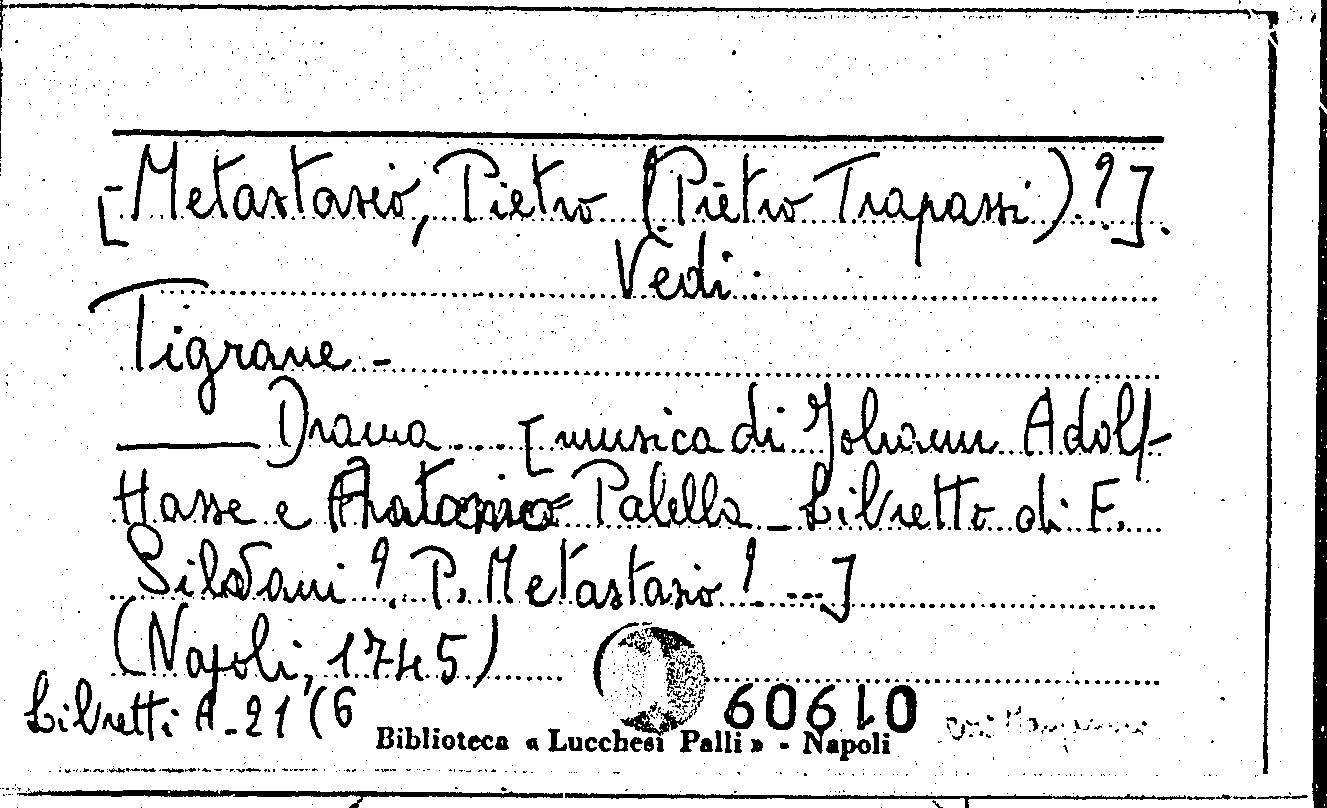 [-Metastasio, Pietro (Pietro Trapassi)?].
Vedi:
Tigrane -
—— Drama .... [musica di Johann Adolf
Hasse e Antonio Palella - Libretto di F.
Silvani? P. Metastasio? ...]
(Napoli, 1745)
Libretti A-21 (6
60610
Biblioteca « Lucchesi Palli » - Napoli